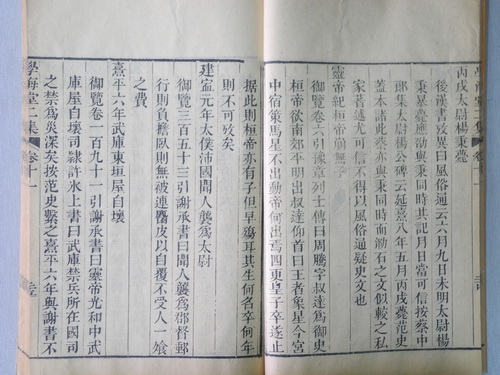 丙戌太尉楊秉薨
後漢書攷異曰風俗通云六月九日未明太尉楊
秉暴薨應劭與秉同時其記月日當可信按蔡中
郎集太尉楊公碑云延熹八年五月丙戌薨范史
蓋本諸此蔡亦與秉同時而泐石之文似較之私
家著述尤可信不得以風俗通疑史文也
靈帝紀桓帝崩無子
御覽卷六引豫章列士傳曰周騰字叔達爲御史
桓帝欲南郊平明出叔達仰首曰王者象星今宮
中宿策馬星不出動帝何出焉四更皇子卒遂止
據此則桓帝亦有子但早殤耳其生何名卒何年
則不可攷矣
建寧元年太僕沛國聞人襲爲太尉
御覽三百五十三引謝承書曰聞人襲爲郡督郵
行則負擔臥則無被連䍡皮以自覆不受人一飧
之費
熹平六年武庫東垣屋自壞
御覽卷一百九十一引謝承書曰靈帝光和中武
庫屋自壞司隸許氷上書曰武庫禁兵所在國司
之禁爲災深矣按范史繫之熹平六年與謝書不
學海堂二集
卷十一